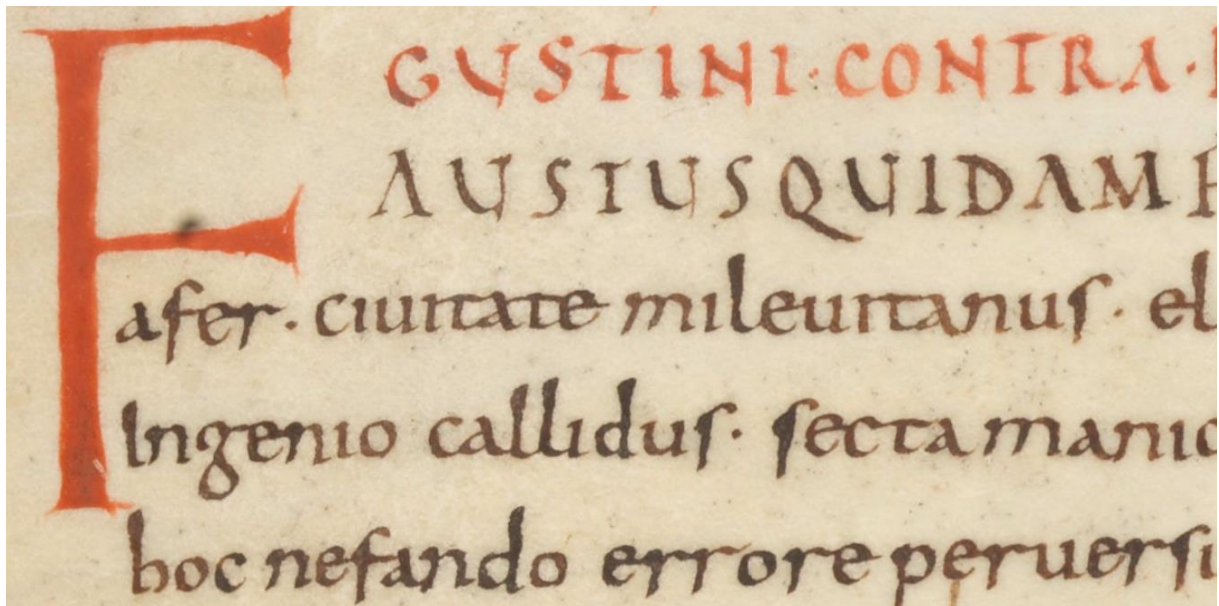 GUSTINI·CONTRA·
FAUSTUS QUIDAM F
afer· ciuitate mileuitanus· el
Ingenio callidus· secta manic
hoc nefando errore peruersi